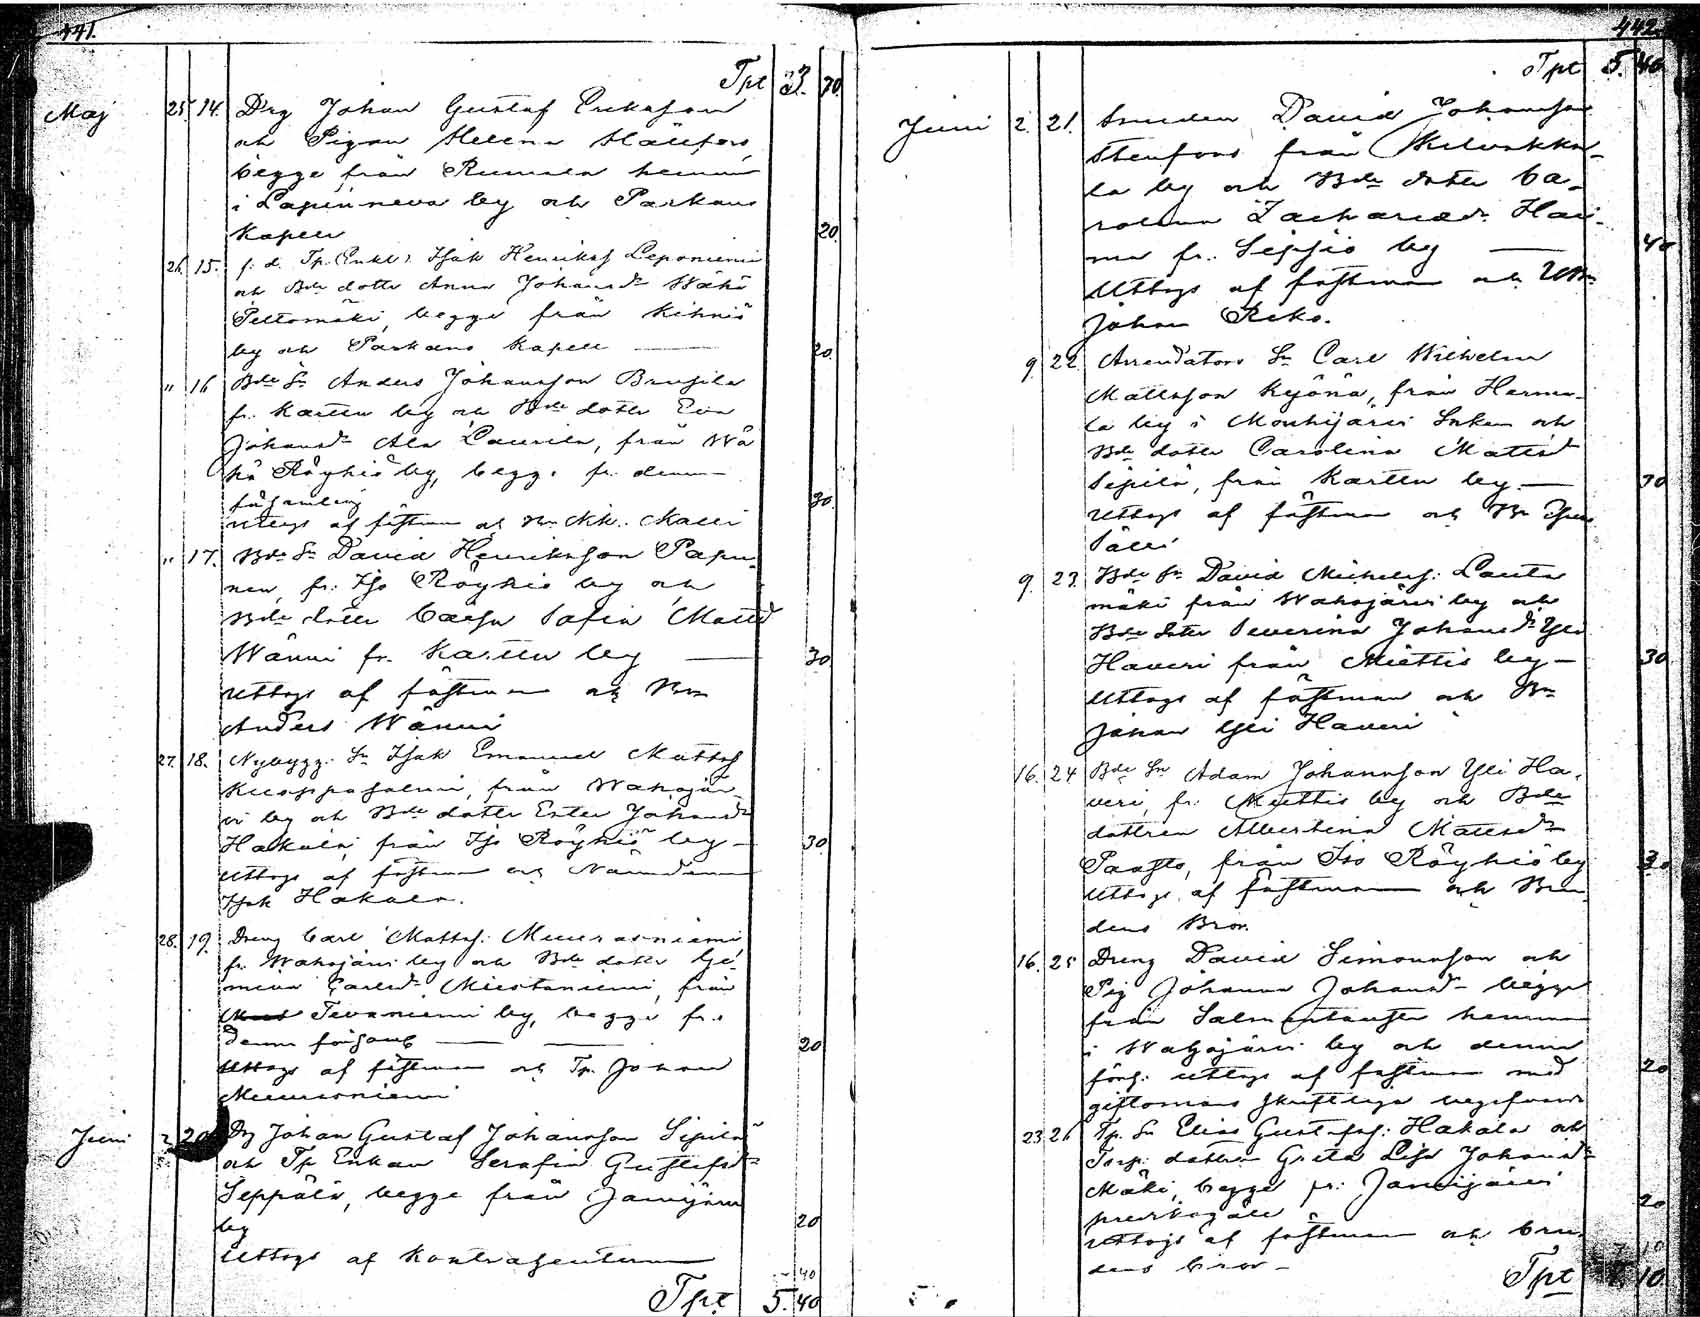 441.
Tpt 3. 70.
Maj 25 14. Drg Johan Gustaf Eriksson
och Pigan Helena Hällfors,
begge från Rumala hemman
i Lapinneva by och Parkano
Kapell 20.
26. 15. f. d. Tp. Enkl. Isak Henriksf Leponiemi
och Bde dotter Anna Johansdr Wähä
Peltomäki, begge från Kihniö
by och Parkano Kapell — 20.
" 16 Bde Sn Anders Johansson Brusila
fr. Karttu by och Bde dotter Eva
Johansdr Ala Laurila, från Wä
hä Röyhiö by, begge fr. denna
församling 30.
Uttogs af fästman och Kk. Matti
" 17. Bde Sn David Henriksson Papu-
nen, fr. Iso Röyhiö by och
Bde dotter Caisa Sofia Mattsd
Wänni fr. Karttu by — 30
Uttogs af fästman och Bn
Anders Wänni
27. 18. Nybygg. Sn Isak Emanuel Mattsf
Kuoppasalmi, från Wahojär-
vi by och Bde dotter Ester Johansdr
Hakala, från Iso Röyhiö by — 30
Uttogs af fästman och Nämndeman
Isak Hakala.
28. 19. Dreng Carl Mattsf. Muurasniemi
fr. Wahojärvi by och Bde dotter
Carlsdr Mustaniemi, från
Tevaniemi by, begge fr.
denna församl — 20
Uttogs af fästman och Tp. Johan
Muurasniemi
Juni 2 20. Drg Johan Gustaf Johansson Sipilä
och Tp Enkan Serafia Gustafsdr
Seppälä, begge från Jämijärvi
by 20
Uttogs af Kontrahenterna
40
Tpt 5. 40
442.
Tpt 5. 40
Juni 2. 21. Smeden David Johansson
Stenfors från Kilvakka-
la by och Bde dotter Ca-
rolina Zachariædr Hau-
ma fr. Sippio by — 40
Uttogs af fästman och
Johan Reko.
9. 22. Arrendators Sn Carl Wilhelm
Mattsson Kyönä, från Herma-
la by i Mouhijärvi Soken och
Bde dotter Carolina Mattsd
Sipilä, från Karttu by — 30
Uttogs af fästman och Bn
Sälli
9. 23. Bde Sn David Michelsf. Lauta
mäki från Wahojärvi by och
Bde dotter Severina Johansdr Yli
Haveri från Miettis by — 30
Uttogs af fästman och Bn
Johan Yli Haveri
16. 24 Bde Sn Adam Johansson Yli Ha-
veri, fr. Miettis by och Bde
dottren Albertina Mattsdr
Paasto, från Iso Röyhiö by 30
Uttogs af fästman och Bru-
dens Bror.
16. 25 Dreng David Simonsson och
Pig Johanna Johansdr begge
från Salmentausta hemman
i Wahojärvi by och denna
förs. uttogs af fästman med 20
giftomans skriftliga begifvande
23. 26 Tp. Sn Elias Gustafsf. Hakala och
Torp. dottren Greta Lisa Johansdr
Mäki, begge fr. Jämijärvi
predikogäll 20
Uttogs af fästman och bru-
dens bror —
7 10
Tpt 7. 10